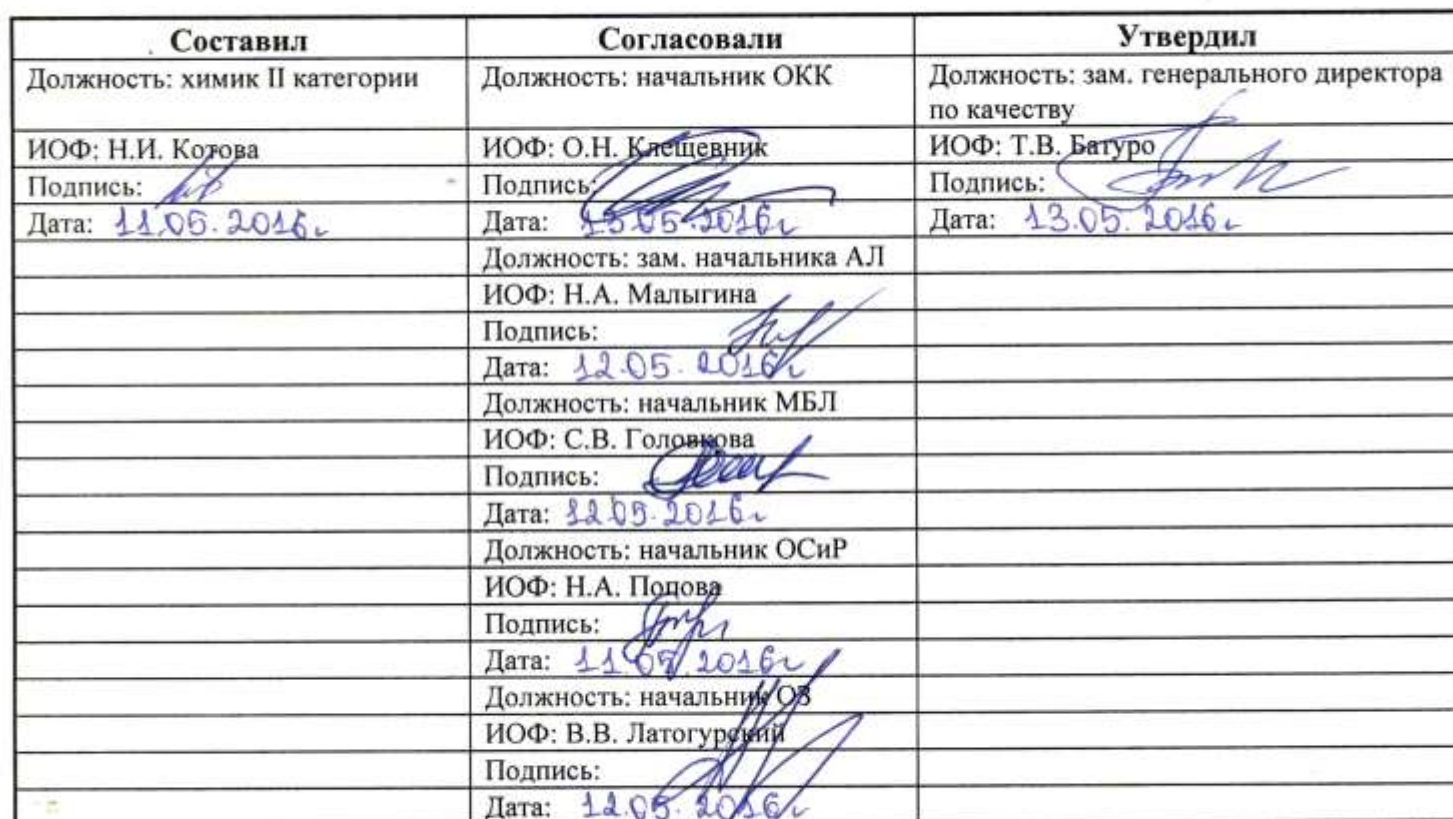 Составил Согласовали Утвердил
Должность: химик II категории Должность: начальник ОКК Должность: зам. генерального директора
по качеству
ИОФ: Н.И. Котова ИОФ: О.Н. Клещевник ИОФ: Т.В. Батуро
Подпись: Подпись: Подпись:
Дата: 11.05.2016г Дата: 13.05.2016г Дата: 13.05.2016г
Должность: зам. начальника АЛ
ИОФ: Н.А. Малыгина
Подпись:
Дата: 12.05.2016г
Должность: начальник МБЛ
ИОФ: С.В. Головкова
Подпись:
Дата: 12.05.2016г
Должность: начальник ОСиР
ИОФ: Н.А. Попова
Подпись:
Дата: 11.05.2016г
Должность: начальник ОЗ
ИОФ: В.В. Латогурский
Подпись:
Дата: 12.05.2016г